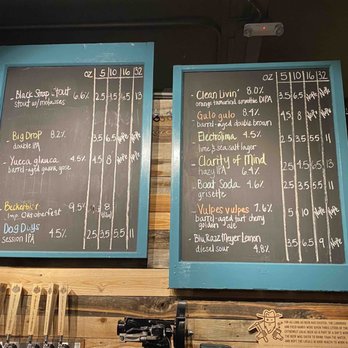 OZ 5 10 16 32
- Black Strap -'tout 6.6% 2.5 4.5 6.5 13
stout w/molasses
- Big Drop 8.2% 3.5 6.5
double IPA
- Yucca glauca 4.5% 4.5 8
barrel-aged guava gose
- Beckerbier 9.5% 8
Imp. Oktoberfest
- Dog Days 4.5% 2.5 3.5 5.5 11
session IPA
OZ 5 10 16 32
- Clean Livin' 8.0% 3.5 6.5
orange tamarind smoothie DIPA
- Gulo gulo 8.4% 4.5 8
barrel-aged double brown
- Electrolima 4.5% 2.5 3.5 5.5 11
lime & sea salt lager
- Clarity of Mind 6.4% 2.5 4.5 6.5 13
hazy IPA
- Boat Soda 4.6% 2.5 3.5 5.5 11
grisette
- Vulpes vulpes 7.6%
barrel-aged tart cherry
golden ale
- Blu Razz Meyer Lemon 3.5 6.5 9
diesel sour 4.8%